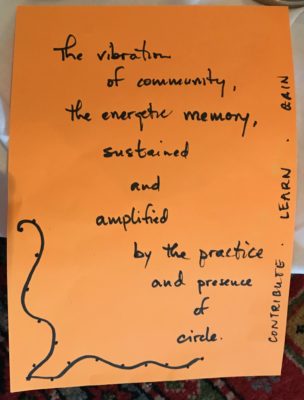 The vibration
of community,
the energetic memory,
sustained
and
amplified
by the practice
and presence
of
circle.
CONTRIBUTE · LEARN · GAIN